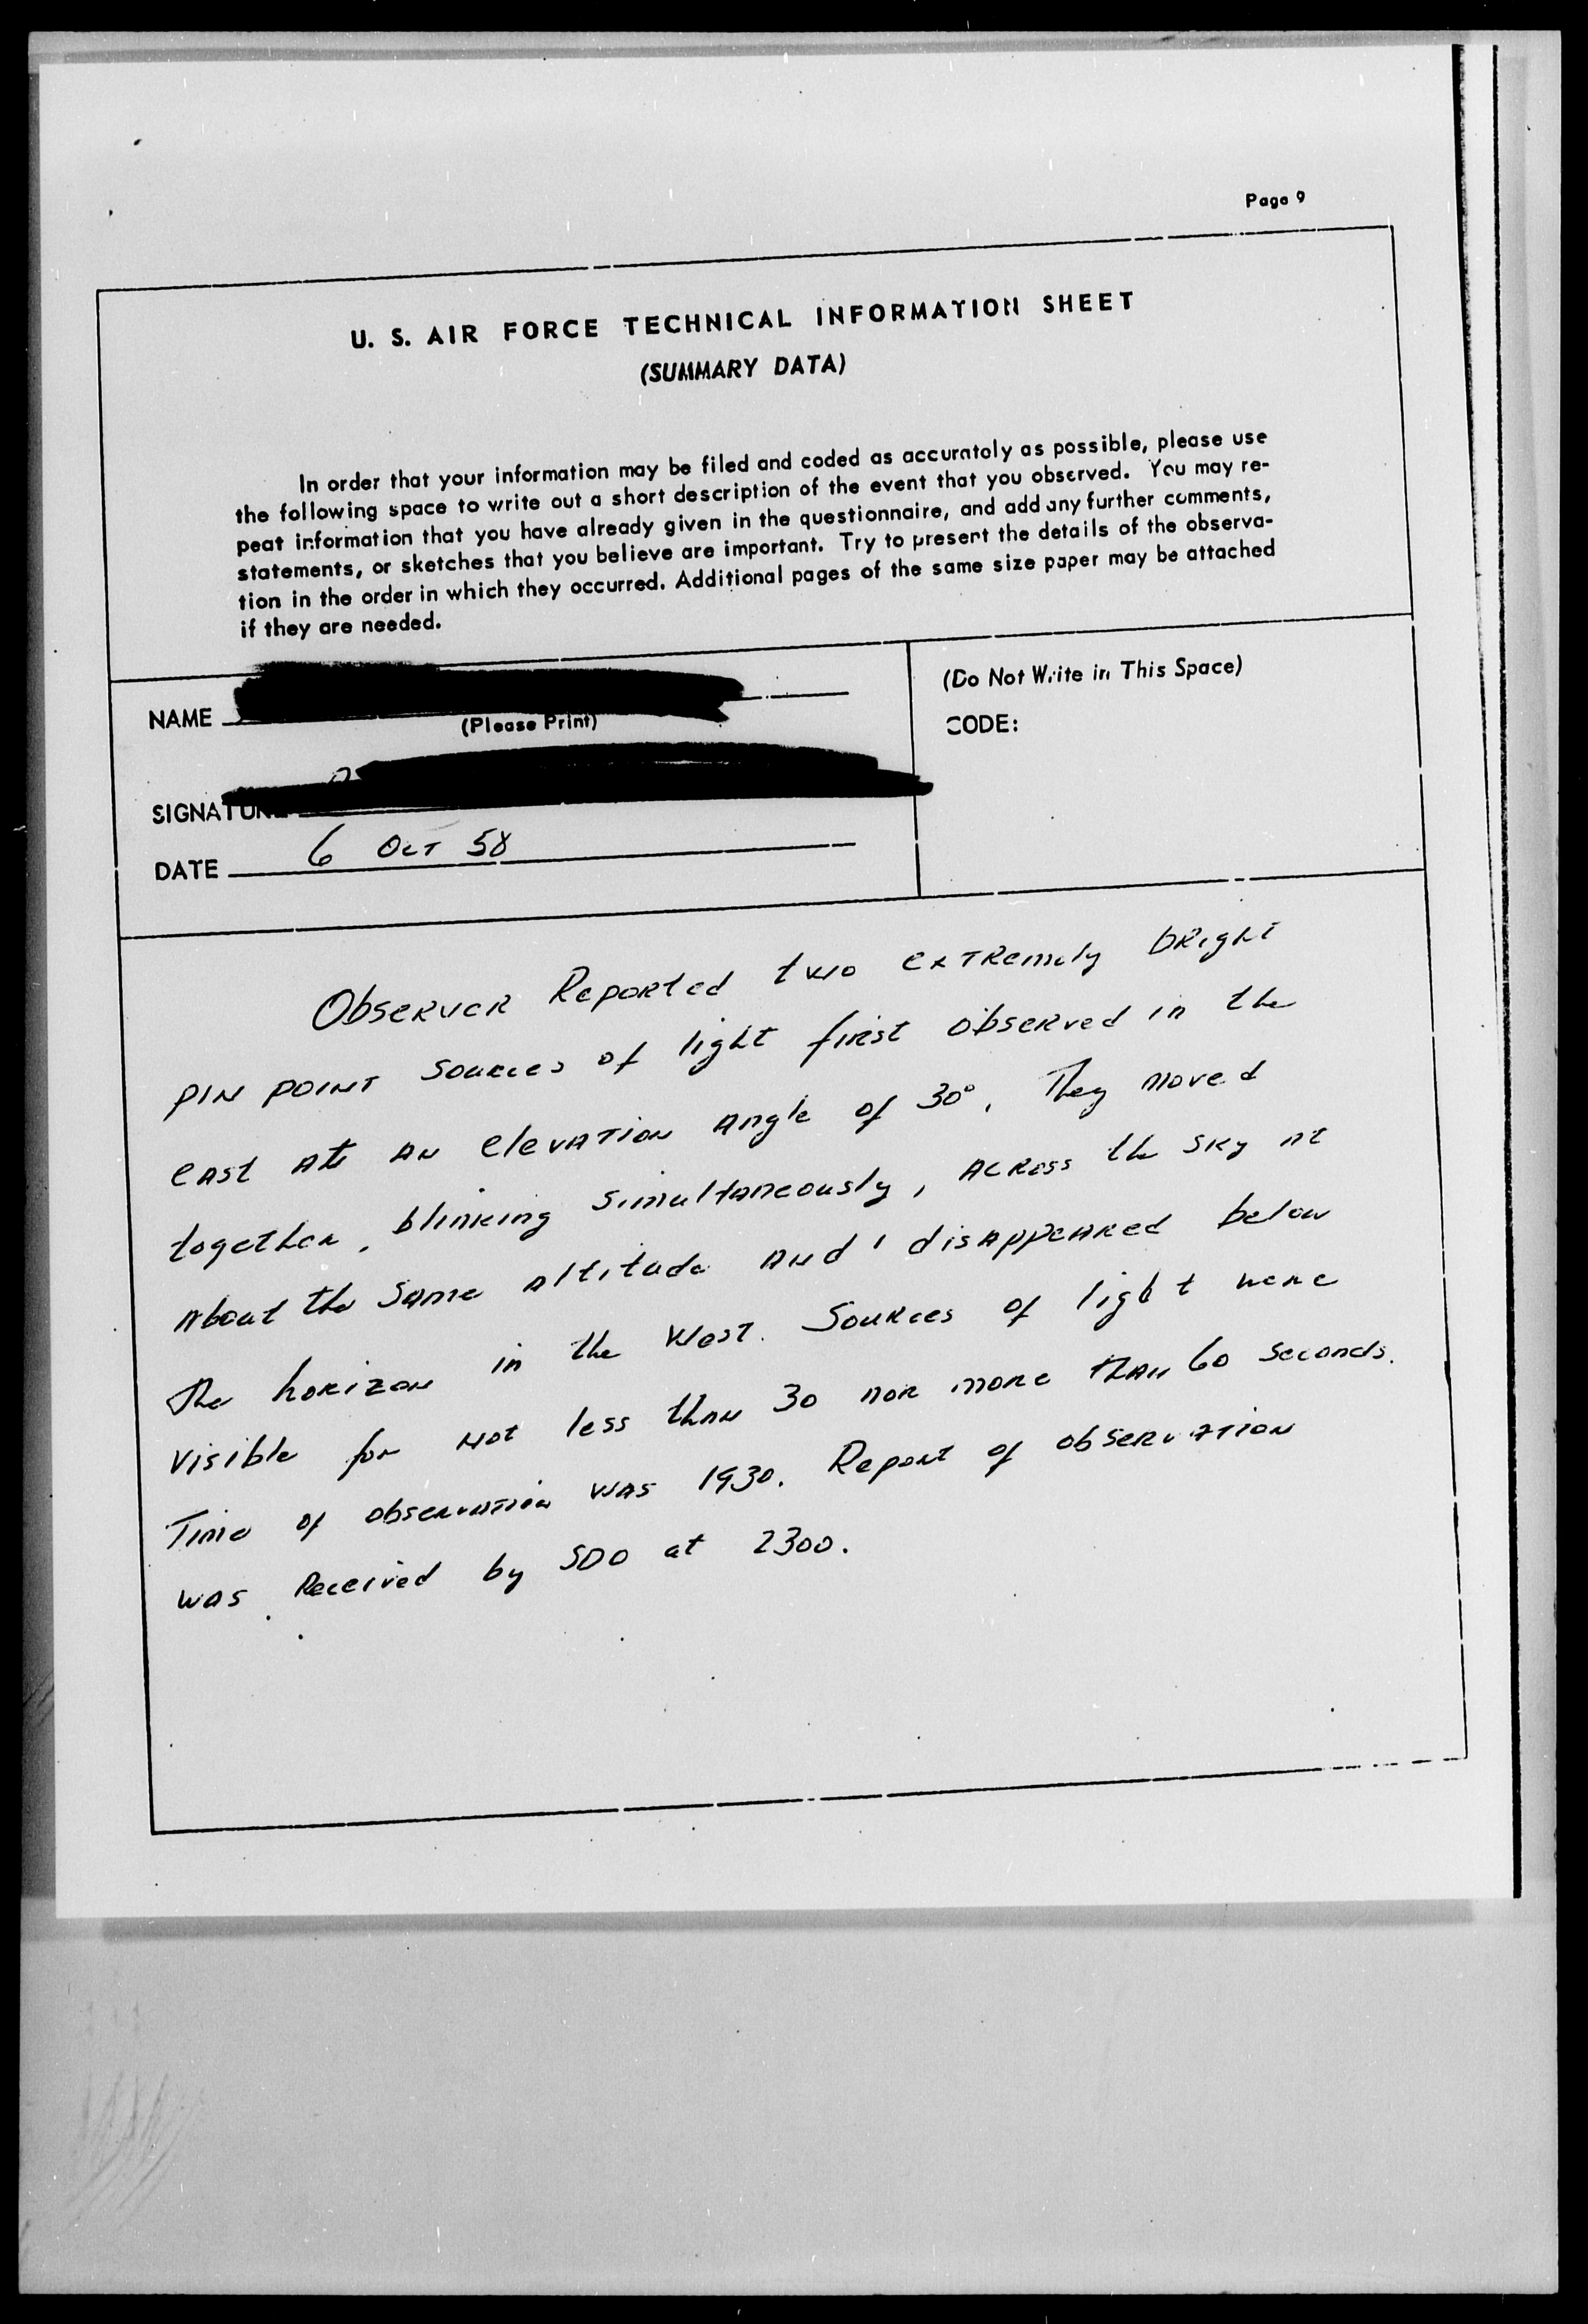 Page 9
U. S. AIR FORCE TECHNICAL INFORMATION SHEET
(SUMMARY DATA)
In order that your information may be filed and coded as accurately as possible, please use
the following space to write out a short description of the event that you observed. You may re-
peat information that you have already given in the questionnaire, and add any further comments,
statements, or sketches that you believe are important. Try to present the details of the observa-
tion in the order in which they occurred. Additional pages of the same size paper may be attached
if they are needed.
NAME
(Please Print)
(Do Not Write in This Space)
CODE:
SIGNATURE
DATE 6 OCT 58
Observer Reported two extremely bright
pin point sources of light first observed in the
east at an elevation angle of 30°. They moved
together, blinking simultaneously, across the sky at
about the same altitude and disappeared below
the horizon in the West. Sources of light were
visible for not less than 30 nor more than 60 seconds.
Time of observation was 1930. Report of observation
was Received by SDO at 2300.